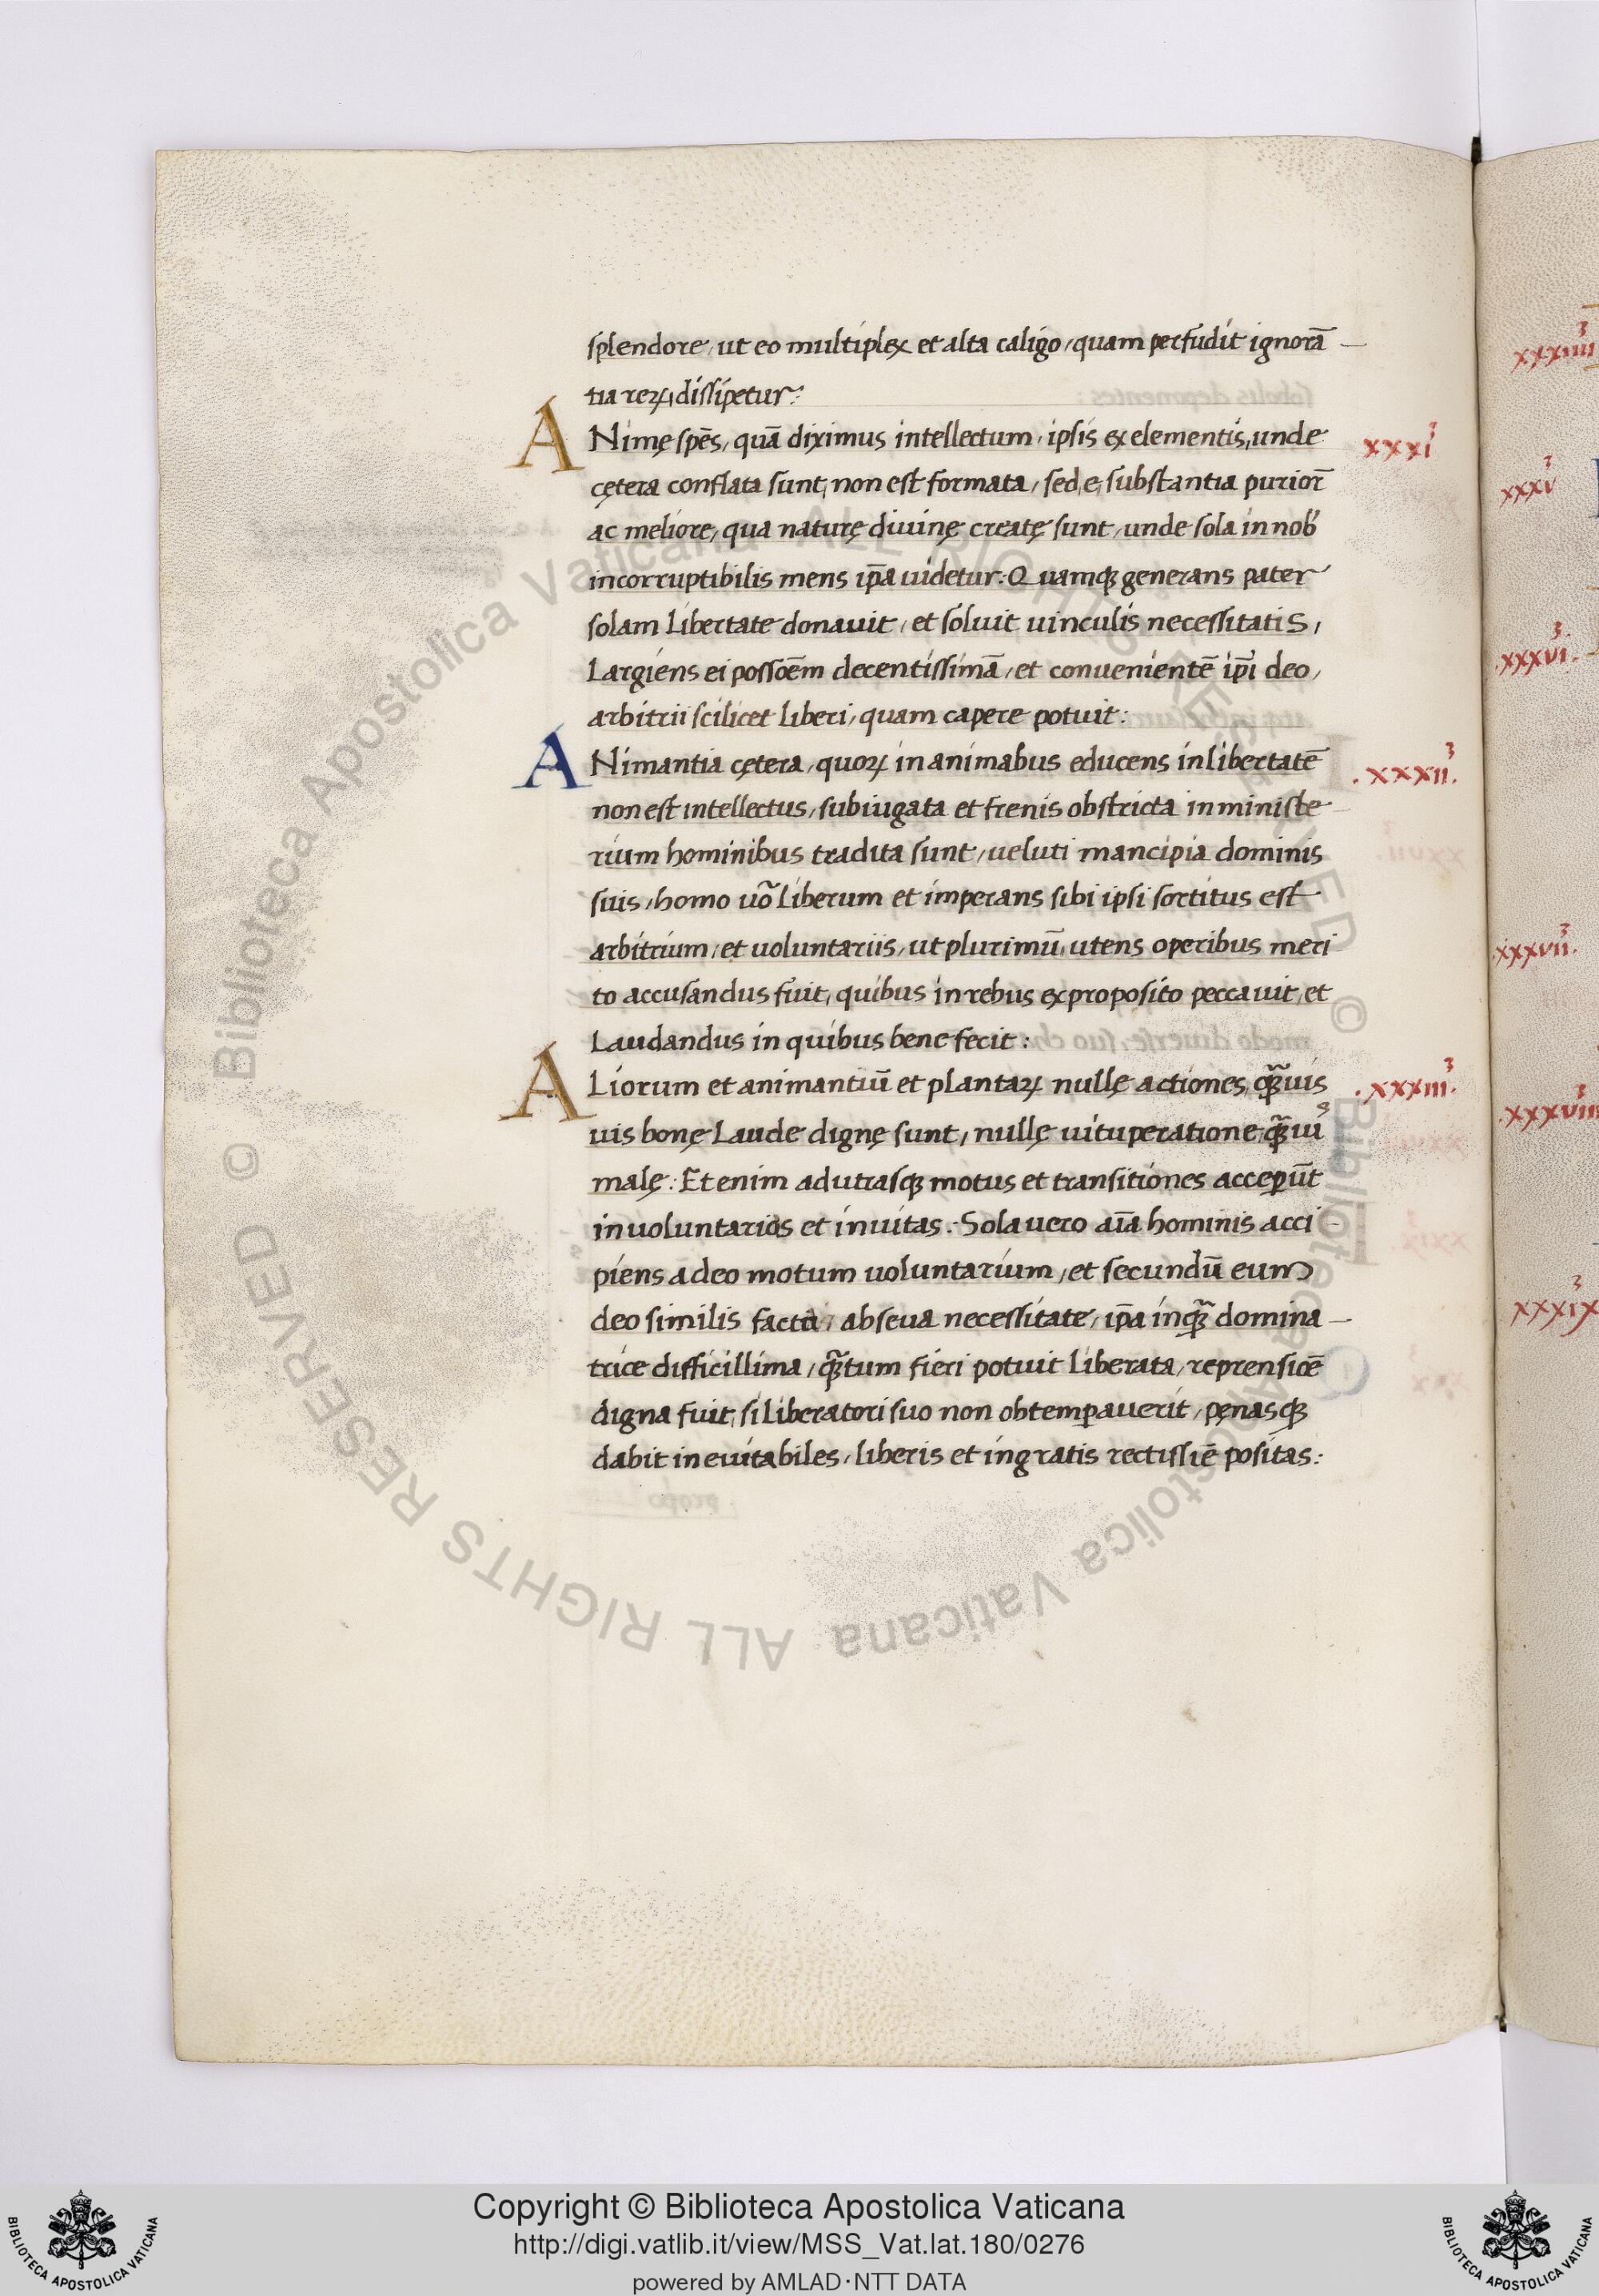 splendore, ut eo multiplex et alta caligo, quam perfudit ignorā
tia reꝝ, dissipetur:
ANimę spēs, quā diximus intellectum, ipsis ex elementis, unde
cętera conflata sunt, non est formata, sed, e, substantia puriorē
ac meliore, qua naturę diuinę creatę sunt, unde sola in nob
incorruptibilis mens ip̄a uidetur: Quamqꝫ generans pater
solam libertate donauit, et soluit uinculis necessitatis,
Largiens ei possoēm decentissimā, et conuenientē ip̄i deo,
arbitrii scilicet liberi, quam capere potuit:
ANimantia cętera, quoꝝ in animabus educens in libertatē
non est intellectus, subiugata et frenis obstricta in ministe
rium hominibus tradita sunt, ueluti mancipia dominis
suis, homo uō liberum et imperans sibi ipsi sortitus est
arbitrium, et uoluntariis, ut plurimū, utens operibus meri
to accusandus fuit, quibus in rebus ex proposito peccauit, et
Laudandus in quibus bene fecit:
ALiorum et animantiū et plantaꝝ nullę actiones, qꝫ̄uis
uis bonę Laude dignę sunt, nullę uituperatione qꝫ̄uis
malę: Etenim ad utrasqꝫ motus et transitiones acceper̄ūt
inuoluntarios et inuitas: Sola uero aīa hominis acci-
piens a deo motum uoluntarium, et secundū eum
deo similis facta, ab seua necessitate, ip̄a inqꝫ̄ domina
trice difficillima, qꝫ̄tum fieri potuit liberata, reprensioē
digna fuit, si liberatori suo non obtemꝑauerit, pęnasqꝫ
dabit ineuitabiles, liberis et ingratis rectissiē positas:
xxxi³
.xxxii³.
.xxxiii³.
xxxiiii³
xxxv³
.xxxvi³.
.xxxvii³.
.xxxviii³
xxxix³
© Biblioteca Apostolica Vaticana ALL RIGHTS RESERVED
© Biblioteca Apostolica Vaticana ALL RIGHTS RESERVED
Copyright © Biblioteca Apostolica Vaticana
http://digi.vatlib.it/view/MSS_Vat.lat.180/0276
powered by AMLAD·NTT DATA
BIBLIOTECA APOSTOLICA VATICANA
BIBLIOTECA APOSTOLICA VATICANA